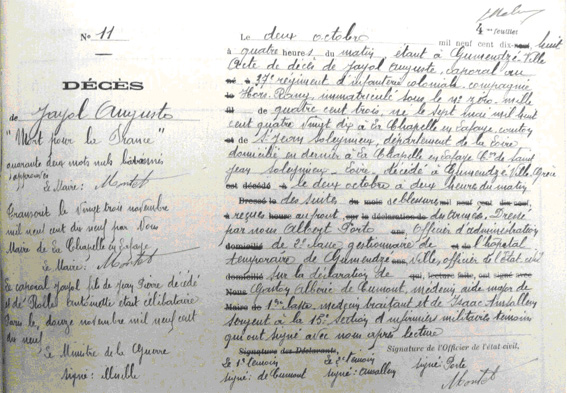 4me feuillet
N° 11
DÉCÈS
de Jayol Auguste
"Mort pour la France"
quarante deux mots nuls
approuvés
Le Maire: Montet
Transcrit le Vingt trois novembre
mil neuf cent dix neuf par Nous
Maire de La Chapelle en Lafaye
Le Maire: Montet
Le caporal Jayol fils de Jean Pierre décédé
et de Antoinette était célibataire
Paris le, douze novembre mil neuf cent
dix neuf
Le Ministre de la Guerre
signé:
Le deux octobre mil neuf cent dix huit
à quatre heures du matin étant à Gumendzé Ville
Acte de décès de Jayol Auguste, caporal au
37e régiment d'infanterie coloniale, compagnie
Hors Rang, immatriculé sous le no zéro. mille
quatre cent trois, né le sept mai mil huit
cent quatre vingt dix à La Chapelle en Lafaye, canton
de St Jean Soleymieux, département de la Loire
domicilié en dernier à La Chapelle en Lafaye Con de Saint
Jean Soleymieux - Loire, décédé à Gumendzé Ville, Grèce
est décédé le deux octobre à deux heures du matin
Dressé le des suites du mois de blessures mil neuf cent dix neuf,
reçues heures au front, sur la déclaration de Dressé
par nous Albert Porte ans, Officier d'administration
domicilié de 2e classe gestionnaire de l'hôpital
temporaire de Gumendzé ans, Ville, officier de l'état civil
domicilié sur la déclaration de qui, lecture faite, ont signé avec
Nous Gaston Albéric de Cumont, médecin aide major de
Maire de 1re classe, médecin traitant et de Isaac Amsallem
sergent à la 15e Section d'infirmiers militaires témoins
qui ont signé avec nous après lecture
Signature des Déclarants, Signature de l'Officier de l'état civil,
Le 1er témoin Le 2e témoin signé: Porte
signé: de Cumont signé: Amsallem Montet